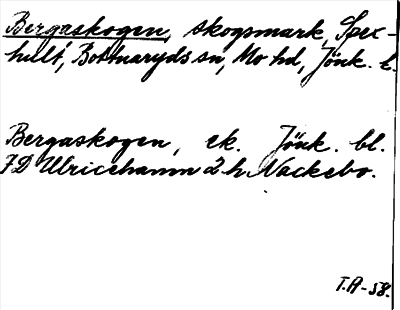 Bergaskogen, skogsmark, Spex-
hult, Bottnaryds sn, Mo hd, Jönk. l.
Bergaskogen, ek. Jönk. bl.
7D Ulricehamn 2 h Nackebo.
T.A-58.